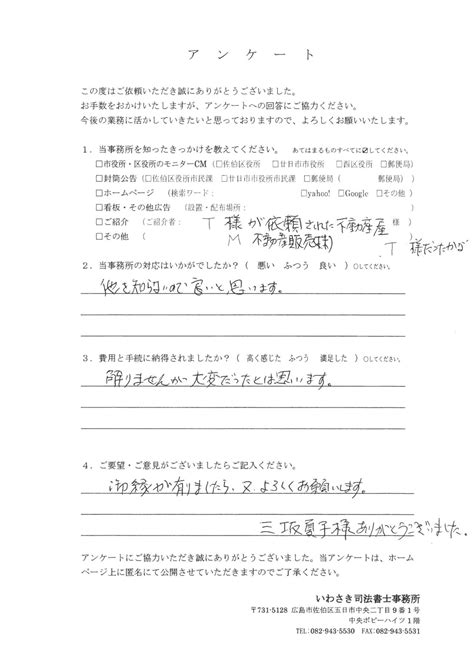 アンケート
この度はご依頼いただき誠にありがとうございました。
お手数をおかけいたしますが、アンケートへの回答にご協力ください。
今後の業務に活かしていきたいと思っておりますので、よろしくお願いいたします。
1．当事務所を知ったきっかけを教えてください。 あてはまるものすべてに☑してください。
□市役所・区役所のモニターCM（□佐伯区役所 □廿日市市役所 □西区役所 □郵便局）
□封筒公告（□佐伯区役所市民課 □廿日市市役所市民課 □郵便局（ 郵便局））
□ホームページ （検索ワード： ） □yahoo! □Google □その他 ）
□看板・その他広告 （設置・配布場所： ）
□ご紹介 （ご紹介者： T 様が依頼された不動産屋 様 ）
□その他 （ M 不動産販売(株) T 様だったかな
2．当事務所の対応はいかがでしたか？（ 悪い ふつう 良い ）○してください。
他を知らないので良いと思います。
3．費用と手続に納得されましたか？（ 高く感じた ふつう 満足した ）○してください。
解りませんが大変だったとは思います。
4．ご要望・ご意見がございましたらご記入ください。
御縁が有りましたら、又、よろしくお願いします。
三坂夏子様ありがとうございました。
アンケートにご協力いただき誠にありがとうございました。当アンケートは、ホーム
ページ上に匿名にて公開させていただきますのでご了承ください。
いわさき司法書士事務所
〒731-5128 広島市佐伯区五日市中央二丁目9番1号
中央ポピーハイツ1階
TEL:082-943-5530 FAX:082-943-5531